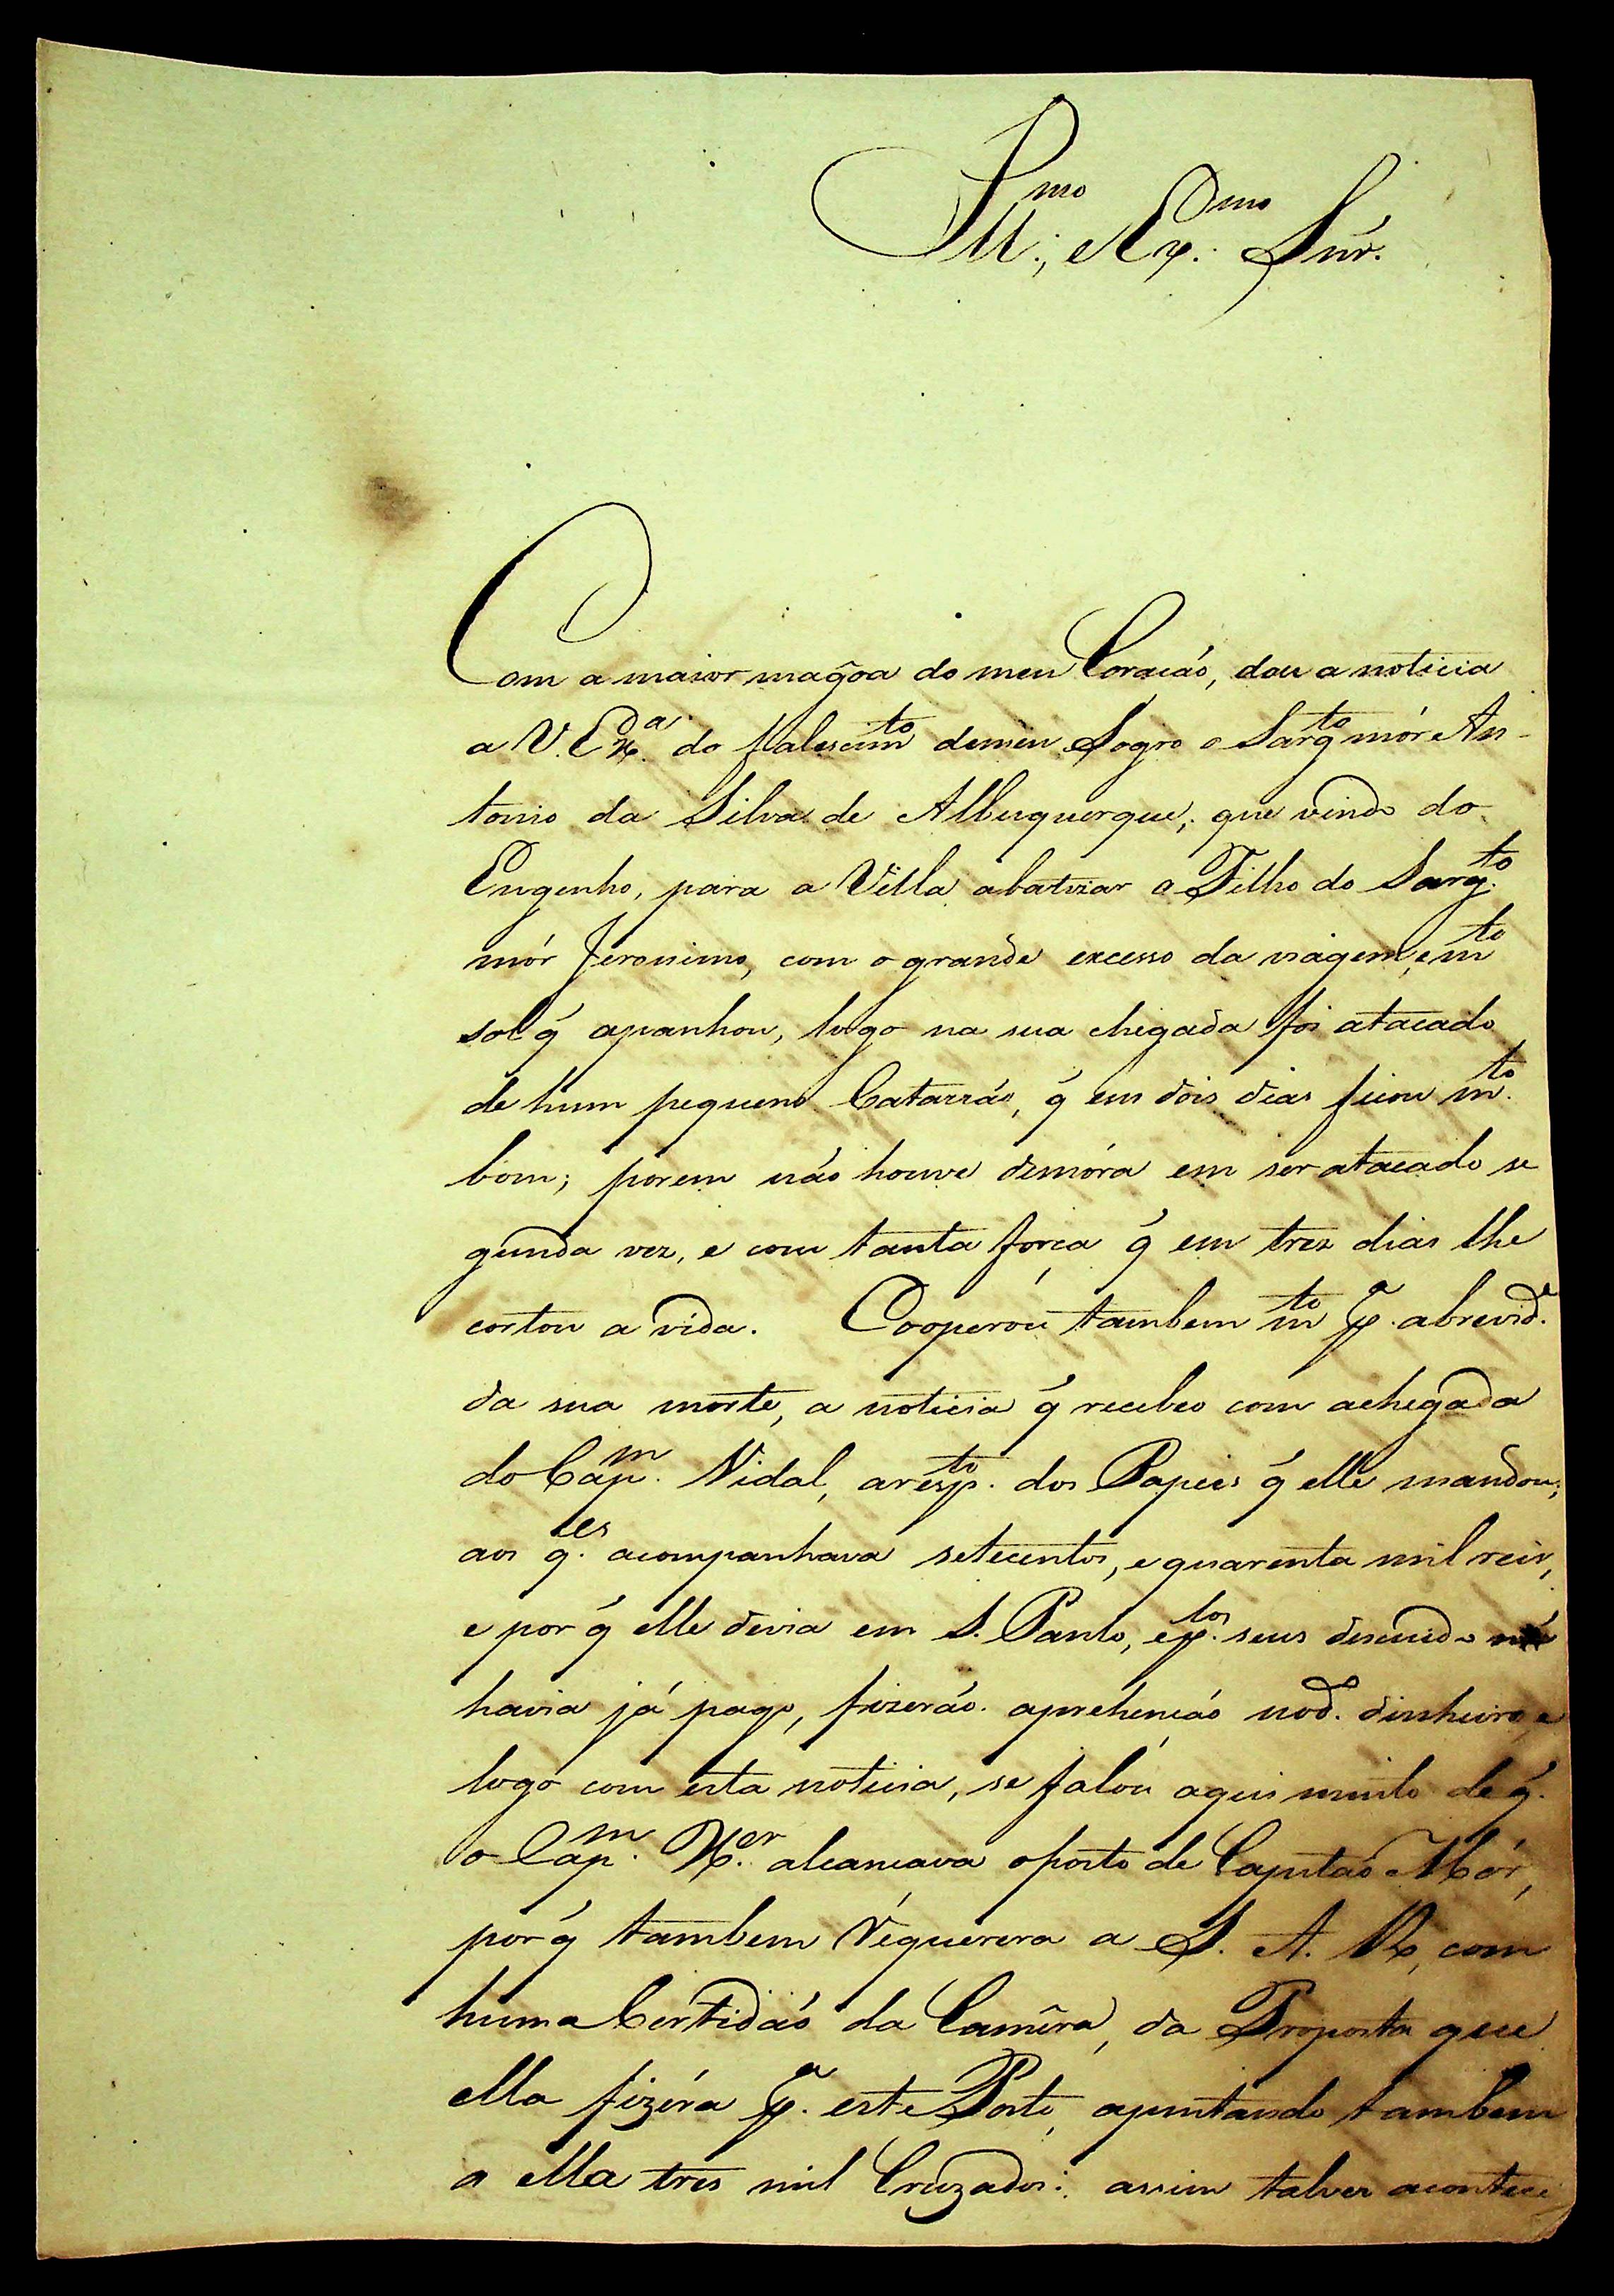 Ill.mo, e Ex.mo Snr.
Com a maior magoa do meu Coração, dou a noticia
a V. Ex.a do falescim.to de meu Sogro o Sarg.to mór An-
tonio da Silva de Albuquerque, que vindo do
Engenho, para a Villa abatizar o Filho do Sarg.to
mór Jeronimo, com o grande excesso da viagem, e m.to
sol q́ apanhou, logo na sua chegada foi atacado
de hum pequeno Catarrão, q́ em dois dias ficou m.to
bom; porem não houve demóra em ser atacado se
gunda vez, e com tanta força q́ em trez dias lhe
cortou a vida. Cooperou tambem m.to p.a abrevid.e
da sua morte, a noticia q́ recebeo com achegada
do Cap.m Vidal, aresp.to dos Papeis q́ elle mandou;
aos q.es acompanhava setecentos, e quarenta mil reis,
e por q́ elle devia em S. Paulo, e p.los seus descuido não
havia já pago, fizerão aprehenção nod.o dinheiro, e
logo com esta noticia, se falou aqui muito de q́
o Cap.m X.er alcançava oposto de Capitão Mór,
por q́ tambem requerera a S. A. R, com
huma Certidão da Camêra, da Proposta que
ella fizéra p.a este Posto, ajuntando tambem
a ella tres mil Cruzados: assim talvez acontece